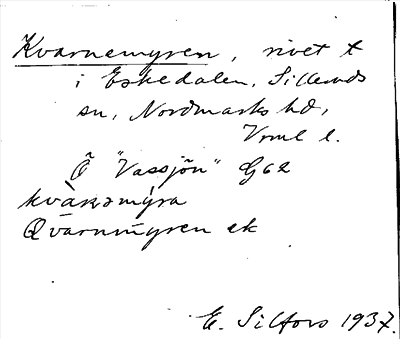 Kvarnemyren, rivet t
i Eskedalen, Silleruds
sn, Nordmarks hd,
Vrml l.
Ö "Vassjön" G62
kvàṇəmýra
Qvarnmyren ek
E. Silfors 1937.